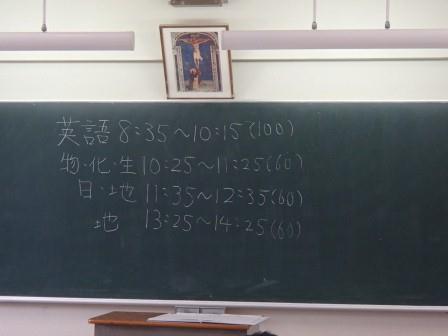 英語 8:35~10:15(100)
物・化・生 10:25~11:25(60)
日・地 11:35~12:35(60)
地 13:25~14:25(60)